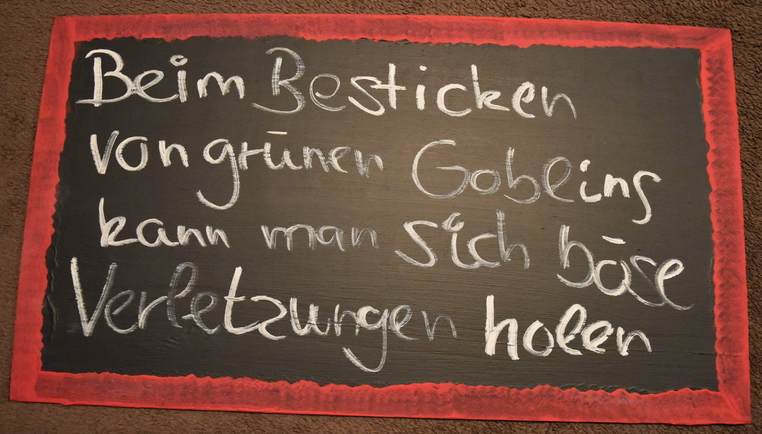 Beim Besticken
von grünen Goblins
kann man sich böse
Verletzungen holen